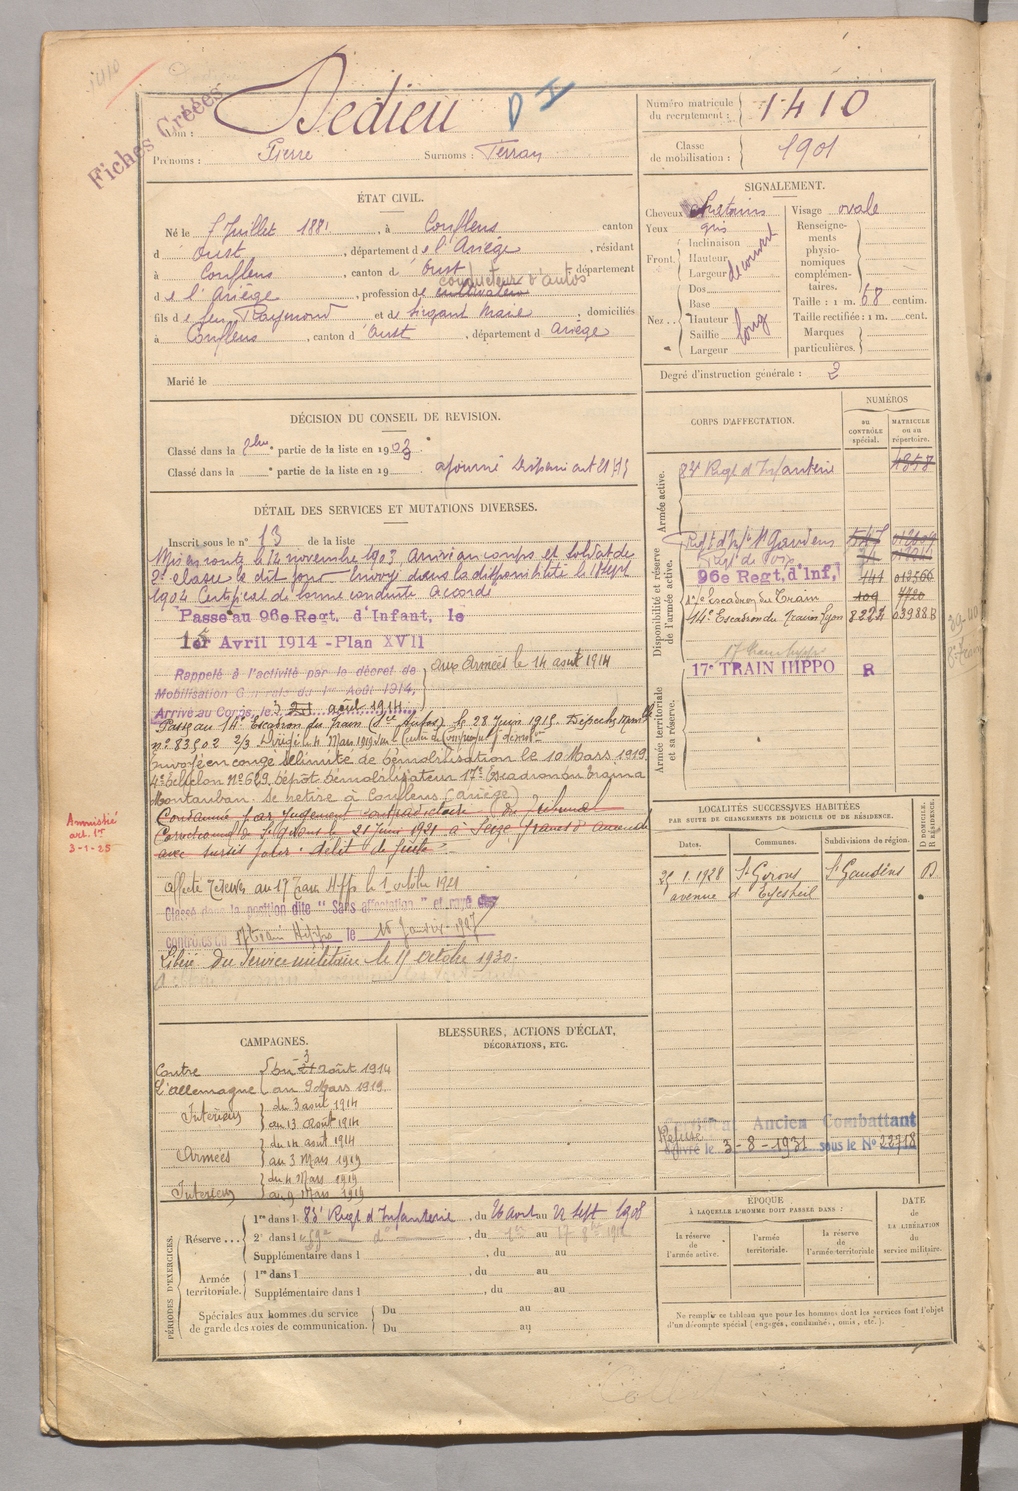 1410
Fiches Créées
Nom : Dedieu
Prénoms : Pierre Surnoms : Terray
Numéro matricule du recrutement : 1410
Classe de mobilisation : 1901
ÉTAT CIVIL.
Né le 7 Juillet 1881, à Couflens canton
d Oust, département de l'Ariège, résidant
à Couflens, canton d'Oust, département
conducteur d'autos
de l'Ariège, profession de cultivateur
fils de feu Raymond et de Sirgant Marie, domiciliés
à Couflens, canton d'Oust, département d Ariège
Marié le
SIGNALEMENT.
Cheveux chatains
Yeux gris
Front. Inclinaison
Hauteur
Largeur découvert
Nez. Dos
Base
Hauteur
Saillie
Largeur
long
Visage ovale
Renseignements physionomiques complémentaires.
Taille : 1 m. 68 centim.
Taille rectifiée : 1 m. cent.
Marques particulières.
Degré d'instruction générale : 2
DÉCISION DU CONSEIL DE REVISION.
Classé dans la partie de la liste en 1903
Classé dans la ° partie de la liste en 19 ajourné
DÉTAIL DES SERVICES ET MUTATIONS DIVERSES.
Inscrit sous le n° 13 de la liste
Mis en route le 14 novembre 1903, Arrivé au corps et soldat de
2e classe le dit jour Envoyé dans la disponibilité le 18 Sept
1904 Certificat de bonne conduite Accordé
Passé au 96e Regt. d'Infant. le
1er Avril 1914 - Plan XVII
Rappelé à l'activité par le décret de
Mobilisation Générale du 1er Août 1914.
Arrivé au Corps, le 3 août 1914
aux Armées le 14 août 1914
Passé au 14e Escadron du Train le 28 Juin 1915
n° 83502 2/3
Envoyé en congé illimité de démobilisation le 10 Mars 1919
4e échelon N° 629, dépôt démobilisateur 17e Escadron du Train à
Montauban. Se retire à Couflens (Ariège)
Condamné par jugement contradictoire du Tribunal
Correctionnel de St Girons le 21 Juin 1921 à Seize francs d'amende
avec sursis pour : délit de
Amnistié
art. 1er
3-1-25
Affecté Réserve au 17 Train Hippo le 1 octobre 1921
Classé dans la position dite "Sans affectation" et rayé des
contrôles du 17 train Hippo le 15 Janvier 1927
Libéré du service militaire le 15 octobre 1930.
CORPS D'AFFECTATION.
NUMÉROS
au CONTRÔLE spécial.
MATRICULE ou au répertoire.
Armée active.
83e Regt d'Infanterie 4858
Disponibilité et réserve de l'armée active.
Regt d'Inf. St Gaudens
Regt de Foix
96e Regt. d'Inf. 141
17e Escadron du Train 109 4720
14e Escadron du Train Lyon 8227 03988B
Armée territoriale et sa réserve.
17 Train hippo
17e TRAIN HIPPO R
LOCALITÉS SUCCESSIVES HABITÉES
PAR SUITE DE CHANGEMENTS DE DOMICILE OU DE RÉSIDENCE.
Dates. Communes. Subdivisions de région. D DOMICILE. R RÉSIDENCE.
1.1928 St Girons St Gaudens D
avenue d'Eycheil
CAMPAGNES.
Contre l'Allemagne du 3 août 1914
au 9 Mars 1919
Intérieur du 3 août 1914
au 13 août 1914
Armées du 14 août 1914
au 3 Mars 1919
Intérieur du 4 Mars 1919
au 9 Mars 1919
BLESSURES, ACTIONS D'ÉCLAT,
DÉCORATIONS, ETC.
Ancien Combattant
Refusé
délivré le 3-8-1931 sous le N° 22718
PÉRIODES D'EXERCICES.
Réserve... 1re dans l 83e Regt d'Infanterie, du 26 Août au 22 Sept 1908
2e dans le 59e d°, du 1er au 17
Supplémentaire dans l , du au
Armée territoriale. 1re dans l , du au
Supplémentaire dans l , du au
Spéciales aux hommes du service de garde des voies de communication. Du au
Du au
ÉPOQUE
À LAQUELLE L'HOMME DOIT PASSER DANS :
la réserve de l'armée active.
l'armée territoriale.
la réserve de l'armée territoriale
DATE de LA LIBÉRATION du service militaire.
Ne remplir ce tableau que pour les hommes dont les services font l'objet
d'un décompte spécial (engagés, condamnés, omis, etc.).